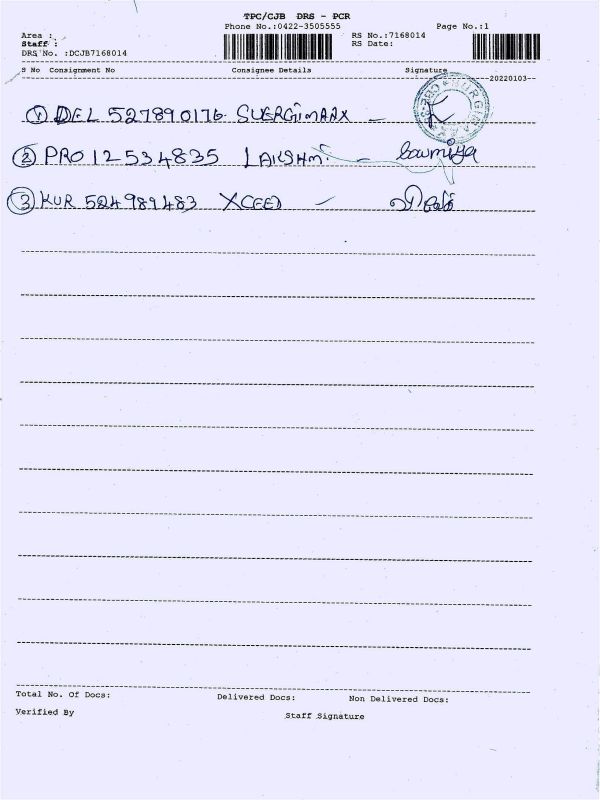 TPC/CJB DRS - PCR
Phone No.:0422-3505555
Page No.:1
Area :
Staff :
DRS No. :DCJB7168014
RS No.:7168014
RS Date:
S No Consignment No Consignee Details Signature
20220103
① DEL 527890176 SUERGIMARX -
② PRO 12534835 LAKSHMI - Sowmiya
③ KUR 524989483 XCEED -
Total No. Of Docs: Delivered Docs: Non Delivered Docs:
Verified By Staff Signature